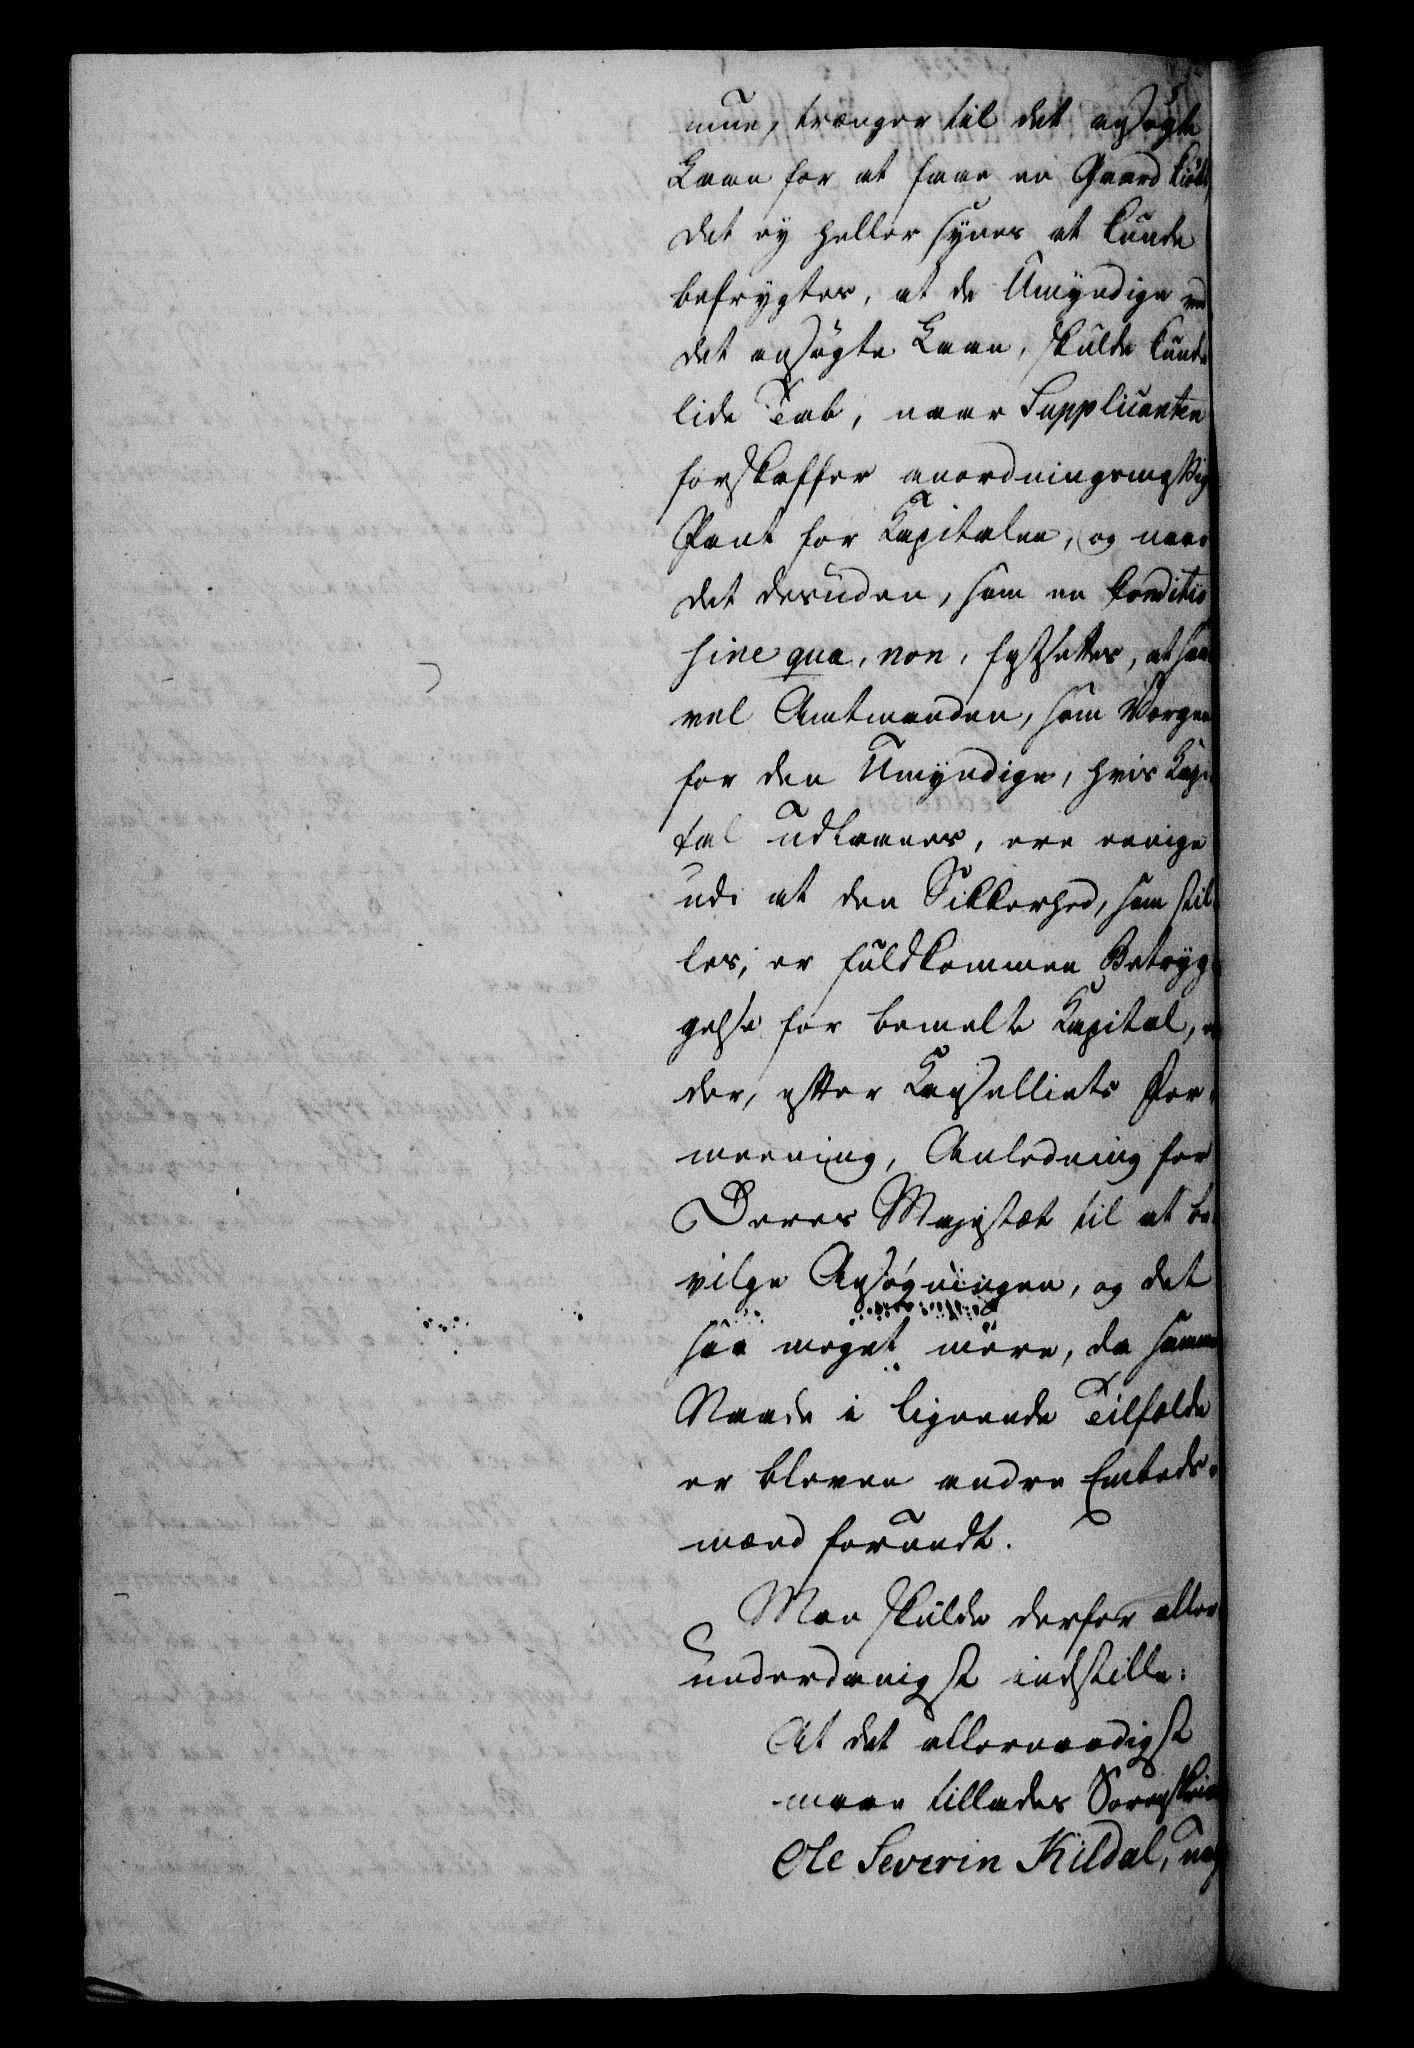 mue, trænger til det ansøgte
Laan for at faae en Gaard kiøbt,
det ey heller synes at kunde
befrygtes, at de Umyndige ved
det ansøgte Laan, skulde kunde
lide Tab, naar Supplicanten
forskaffer anordningsmæssig
Pant for Kapitalen, og naar
det desuden, som en Conditio
sine qua, non, fastsættes, at saa-
vel Amtmanden, som Vergen
for den Umyndige, hvis Kapi-
tal udlaanes, ere eenige
udi at den Sikkerhed, som stil-
les, er fuldkommen Betryg-
gelse for bemelte Kapital, er
der, efter Kancelliets For-
meening, Anledning for
Deres Majestæt til at be-
vilge Ansøgningen, og det
saa meget mere, da samme
Naade i lignende Tilfælde
er bleven andre Embeds-
mænd forundt.
Man skulde derfor aller-
underdanigst indstille:
At det allernaadigst
maae tillades Sorenskriver
Ole Severin Kildal,